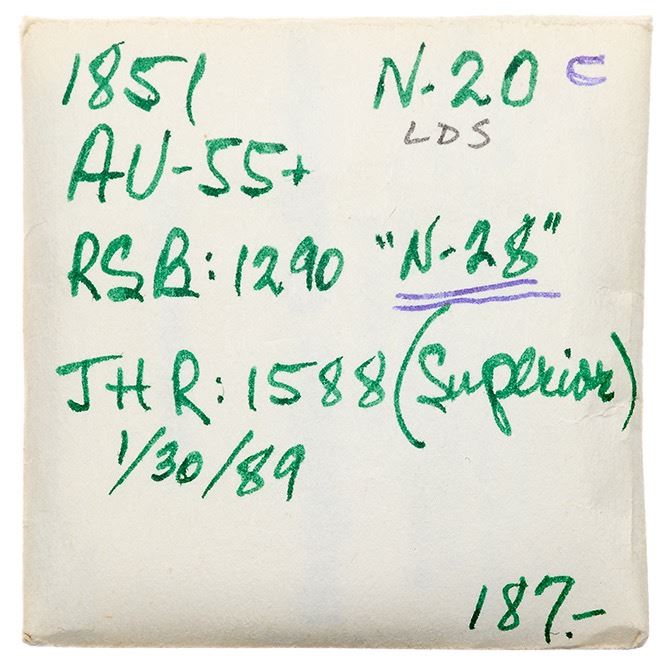 1851 N-20 C
LDS
AU-55+
RSB: 1290 "N-28"
JHR: 1588 (Superior)
1/30/89
187.-